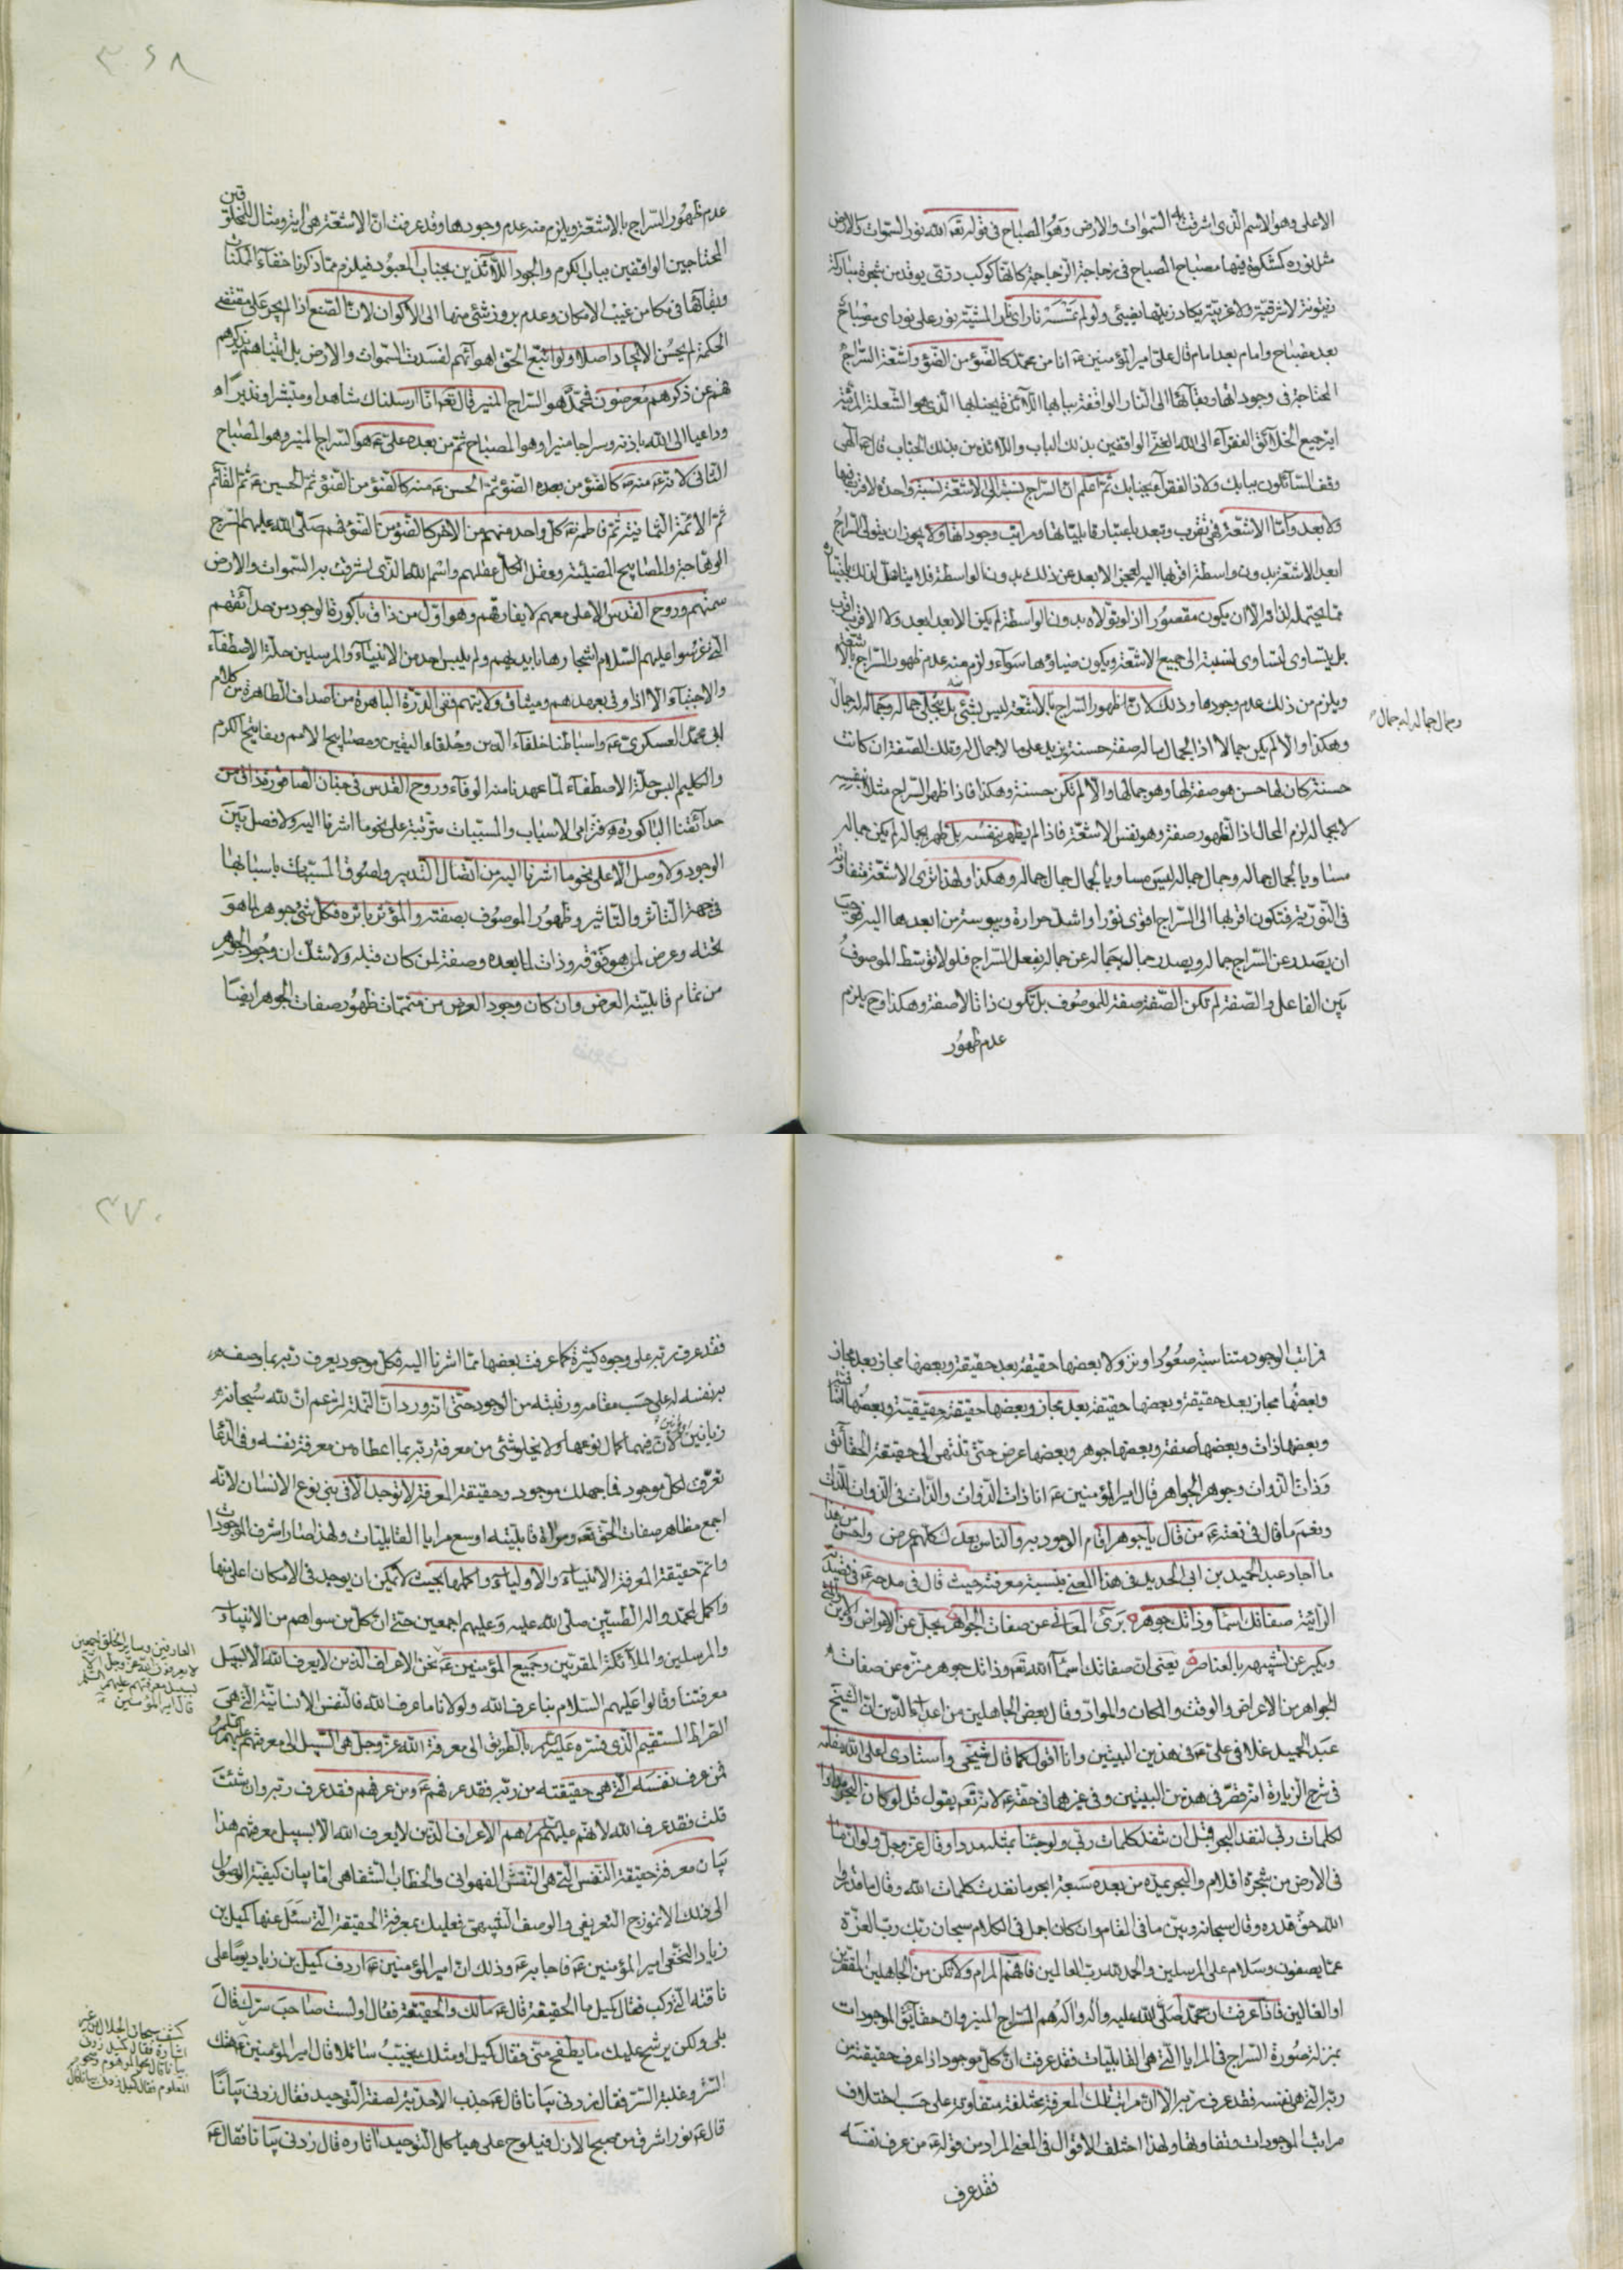 الاعلى وهو الاسم الذى اشرقت به السموات والارض وهو المصباح فى قوله تعه الله نور السموات والارض
مثل نوره كمشكوة فيها مصباح المصباح فى زجاجة الزجاجة كانها كوكب درى يوقد من شجرة مباركة
زيتونة لا شرقية ولا غربية يكاد زيتها يضيئ ولو لم تمسسه نار اى نار المشية نور على نور اى مصباح
بعد مصباح وامام بعد امام قال على امير المؤمنين عه انا من محمد كالضوء من الضوء واشعة السراج
المحتاجة فى وجودها وبقائها الى النار الواقفة ببابها اللائذة بجنابها الذى هو الشعلة المرئية
اية جميع الخلائق الفقراء الى الله الغنى الواقفين بذلك الباب واللائذين بذلك الجناب قال الهى
وقف السائلون ببابك ولاذ الفقراء بجنابك ثم اعلم ان السراج نسبته الى الاشعة نسبة واحدة لا قرب فيها
ولا بعد واما الاشعة فهى تقرب وتبعد باعتبار قابلياتها ومراتب وجوداتها ولا يجوز ان يتولى السراج
ابعد الاشعة بدون واسطة اقربها اليه لعجز الابعد عن ذلك بدون الواسطة فلا
مما يحتمله لذاته والا ان يكون مقسورا اذ لو تولاه بدون الواسطة لم يكن الابعد ابعد ولا الاقرب اقرب
بل يتساوى لتساوى النسبة الى جميع الاشعة ويكون ضياؤها سواء ولزم منه عدم ظهور السراج بالاشعة
ويلزم من ذلك عدم وجودها وذلك لان ظهور السراج بالاشعة ليس بشئ بل بتجلى جماله وجماله له جمال
وجمال جماله له جمال
وهكذا والا لم يكن جمالا اذ الجمال ماله صفة حسنة تزيد على ما لا جمال له وتلك الصفة ان كانت
حسنة كان لها حسن هو صفة لها وهو جمالها والا لم تكن حسنة وهكذا فاذا ظهر السراج مثلا بنفسه
لا بجماله لزم المحال اذ الظهور صفة وهو نفس الاشعة فاذا لم يظهر بنفسه بل ظهر بجماله لم يكن جماله
مساويا لجمال جماله وجمال جماله ليس مساويا لجمال جمال جماله وهكذا ولهذا ترى الاشعة متفاوتة
فى النورية فتكون اقربها الى السراج اقوى نورا واشد حرارة ويبوسة من ابعدها اليه فوجب
ان يصدر عن السراج جماله ويصدر جمال جماله عن جماله بفعل السراج فلولا توسط الموصوف
بين الفاعل والصفة لم تكن الصفة صفة للموصوف بل تكون ذاتا لا صفة وهكذا وح يلزم
عدم ظهور
٣٦٨
عدم ظهور السراج بالاشعة ويلزم منه عدم وجودها وقد عرفت ان الاشعة هى اية ومثال للمخلوقين
المحتاجين الواقفين بباب الكرم والجود اللائذين بجناب المعبود فيلزم مما ذكرنا خفاء الممكنات
وبقائها فى مكامن غيب الامكان وعدم بروز شئ منها الى الاكوان لان الصنع اذا لم يجر على مقتضى
الحكمة لم يحسن الايجاد اصلا ولو اتبع الحق اهوائهم لفسدت السموات والارض بل اتيناهم بذكرهم
فهم عن ذكرهم معرضون فمحمد هو السراج المنير قال تعه انا ارسلناك شاهدا ومبشرا ونذيرا
وداعيا الى الله باذنه وسراجا منيرا وهو المصباح ثم من بعده على عه هو السراج المنير وهو المصباح
الثانى لانه عه منه كالضوء من بعده الضوء ثم الحسن عه منه كالضوء من الضوء ثم الحسين عه ثم القائم
ثم الائمة الثمانية ثم فاطمة عه كل واحد منهم من الاخر كالضوء من الضوء فهم صلى الله عليهم السرج
الوهاجة والمصابيح المضيئة وعقل الكل عقلهم واسم الله الذى اشرقت به السموات والارض
سمتهم وروح القدس الاعلى معهم لا يفارقهم وهو اول من ذاق باكورة الوجود من حدائقهم
التى غرسوا عليهم السلام اشجارها بايديهم ولم يلبس احد من الانبياء والمرسلين حلة الاصطفاء
والاجتباء الا اذا وفى بعهدهم وميثاق ولايتهم ففى الدرة الباهرة من اصداف الطاهرة من كلام
ابى محمد العسكرى عه واسباطنا خلفاء الدين وخلفاء اليقين ومصابيح الامم ومفاتيح الكرم
والكليم البس حلة الاصطفاء لما عهدنا منه الوفاء وروح القدس فى جنان الصاقورة ذاق من
حدائقنا الباكورة فترى الاسباب والمسببات مترتبة على نحو ما اشرنا اليه ولا فصل بين
الوجود ولا وصل الا على نحو ما اشرنا اليه من اتصال التدبير ولصوق المسببات باسبابها
فى جهة التاثر والتاثير وظهور الموصوف بصفته والمؤثر باثره فكل شئ جوهر لما هو
تحته وعرض لمن هو فوقه وذات لما بعده وصفة لمن كان قبله ولا شك ان وجود الجوهر
من تمام قابلية العرض وان كان وجود العرض من متممات ظهور صفات الجوهر ايضا
فراتب الوجود متناسبة صعودا ونزولا بعضها حقيقة بعد حقيقة وبعضها مجاز بعد مجاز
وبعضها مجاز بعد حقيقة وبعضها حقيقة بعد مجاز وبعضها حقيقة حقيقية وبعضها
وبعضها ذات وبعضها صفة وبعضها جوهر وبعضها عرض حتى تنتهى الى حقيقة الحقائق
وذات الذوات وجوهر الجواهر قال امير المؤمنين عه انا ذات الذوات والذات فى الذوات للذات
ونعم ما قال فى نعته عه من قال يا جوهرا قام الوجود به والناس بعدك كلهم عرض واحسن من هذا
ما اجاد عبد الحميد بن ابى الحديد فى هذا المعنى بنسبة معرفته حيث قال فى مدحه عه فى قصيدته
الرائية صفاتك اسماء وذاتك جوهر برئ المعالى عن صفات الجواهر يجل عن الاعراض والاين والمتى
ويكبر عن تشبيهه بالعناصر يعنى ان صفاتك اسماء الله تعه وذاتك جوهر منزه عن صفات
الجواهر من الاعراض والوقت والمكان والمواد وقال بعض الجاهلين من اعداء الدين ان الشيخ
عبد الحميد غلا فى على عه فى هذين البيتين وانا اقول كما قال شيخى واستادى اعلى الله مقامه
فى شرح الزيارة انه قصر فى هذين البيتين وفى غيرهما فى حقه عه لانه تعه يقول قل لو كان البحر مدادا
لكلمات ربى لنفد البحر قبل ان تنفد كلمات ربى ولو جئنا بمثله مددا وقال عز وجل ولو ان ما
فى الارض من شجرة اقلام والبحر يمده من بعده سبعة ابحر ما نفدت كلمات الله وقال ما قدروا
الله حق قدره وقال سبحانه وبين ما فى المقام وان كان اجمل فى الكلام سبحان ربك رب العزة
عما يصفون وسلام على المرسلين والحمد لله رب العالمين فافهم المرام ولا تكن من الجاهلين المقصرين
او الغالين فاذا عرفت ان محمدا صلى الله عليه واله واله هم السراج المنير وان حقايق الموجودات
بمنزلة صورة السراج فى المرايا التى هى القابليات فقد عرفت ان كل موجود اذا عرف حقيقته من
ربه التى هى نفسه فقد عرف ربه الا ان مراتب تلك المعرفة مختلفة متفاوتة على حسب اختلاف
مراتب الموجودات وتفاوتها ولهذا اختلف الاقوال فى المعنى المراد من قوله عه من عرف نفسه
فقد عرف
٣٧٠
فقد عرف ربه على وجوه كثيرة كما عرفت بعضها مما اشرنا اليه فكل موجود يعرف ربه بما وصف
به نفسه له على حسب مقامه ورتبته من الوجود حتى انه ورد ان النملة تزعم ان لله سبحانه
زبانيتين لان فيهما كمال نوعها ولا يخلو شئ من معرفة ربه بما اعطاه من معرفة نفسه وفى الدعا
تعرفت لكل موجود فما جهلك موجود وحقيقة المعرفة لا توجد الا فى بنى نوع الانسان لانه
اجمع مظاهر صفات الحق تعه ومراة قابليته اوسع مرايا القابليات ولهذا صار اشرف الموجودات
واتم حقيقة المعرفة الانبياء والاولياء واكملها بحيث لا يمكن ان يوجد فى الامكان اعلى منها
واكمل لمحمد واله الطيبين صلى الله عليه وعليهم اجمعين حتى ان كل من سواهم من الانبياء
والمرسلين والملائكة المقربين وجميع المؤمنين عه نحن الاعراف الذين لا يعرف الله الا بسبيل
العارفين وساير الخلق اجمعين
لا يعرفون الله عز وجل الا
بسبيل معرفتهم عليهم السلم
قال امير المؤمنين
معرفتنا وقالوا عليهم السلام بنا عرف الله ولولانا ما عرف الله فالنفس الانسانية التى هى
الصراط المستقيم الذى فسره عليه السلم بالطريق الى معرفة الله عز وجل هى السبيل الى معرفتهم عليهم السلم
فمن عرف نفسه التى هى حقيقته من ربه فقد عرفهم عه ومن عرفهم فقد عرف ربه وان شئت
قلت فقد عرف الله لانهم عليهم السلم هم الاعراف الذين لا يعرف الله الا بسبيل معرفتهم هذا
بيان معرفة حقيقة النفس التى هى النقش الفهوانى والخطاب الشفاهى اما بيان كيفية الوصول
الى ذلك الانموذج التعريفى والوصف التشبيهى فعليك بمعرفة الحقيقة التى سئل عنها كميل بن
زياد النخعى امير المؤمنين عه فاجابه عه وذلك ان امير المؤمنين عه اردف كميل بن زياد يوما على
ناقته التى ركب فقال كميل ما الحقيقة قال عه مالك والحقيقة فقال اولست صاحب سرك قال
بلى ولكن يرشح عليك ما يطفح منى فقال كميل او مثلك يخيب سائلا قال امير المؤمنين عه هتك
كشف سبحات الجلال من غير
اشارة فقال كميل زدنى
بيانا قال محو الموهوم وصحو
المعلوم فقال كميل زدنى بيانا قال
الستر وغلبة السر فقال زدنى بيانا قال عه جذب الاحدية لصفة التوحيد فقال زدنى بيانا
قال عه نور اشرق من صبح الازل فيلوح على هياكل التوحيد اثاره قال زدنى بيانا فقال عه